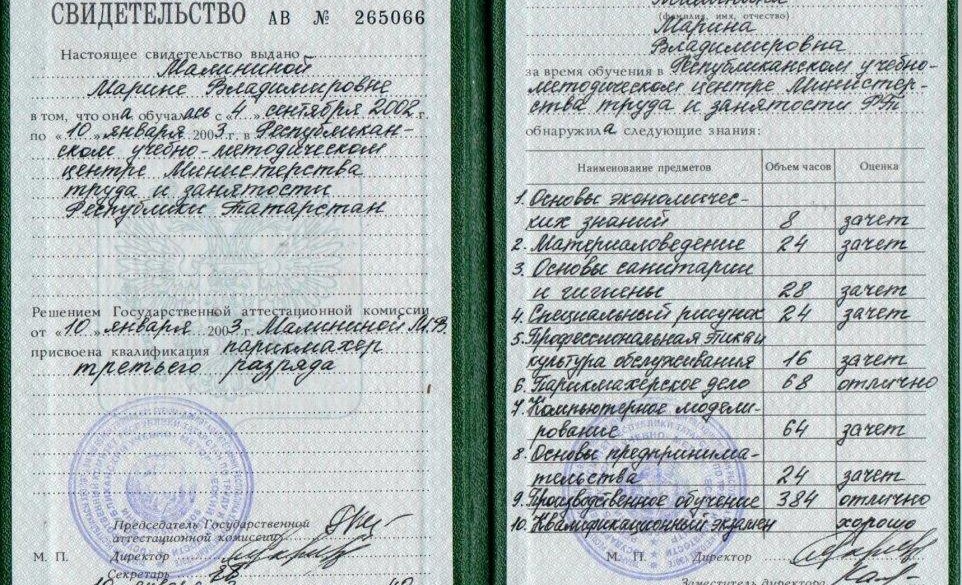 СВИДЕТЕЛЬСТВО АВ № 265066
Настоящее свидетельство выдано
Малининой
Марине Владимировне
в том, что она обучалась с «4» сентября 2002 г.
по «10» января 2003 г. в Республикан-
ском учебно-методическом
центре Министерства
труда и занятости
Республики Татарстан
Решением Государственной аттестационной комиссии
от «10» января 2003 г. Малининой М.В.
присвоена квалификация парикмахер
третьего разряда
Председатель Государственной
аттестационной комиссии
М. П. Директор
Секретарь
(фамилия, имя, отчество)
Марина
Владимировна
за время обучения в Республиканском учебно-
методическом центре Министер-
ства труда и занятости РТ
обнаружила следующие знания:
Наименование предметов Объем часов Оценка
1. Основы экономичес-
ких знаний 8 зачет
2. Материаловедение 24 зачет
3. Основы санитарии
и гигиены 28 зачет
4. Специальный рисунок 24 зачет
5. Профессиональная этика и
культура обслуживания 16 зачет
6. Парикмахерское дело 68 отлично
7. Компьютерное модели-
рование 64 зачет
8. Основы предпринима-
тельства 24 зачет
9. Производственное обучение 384 отлично
10. Квалификационный экзамен хорошо
М. П. Директор
Заместитель директора